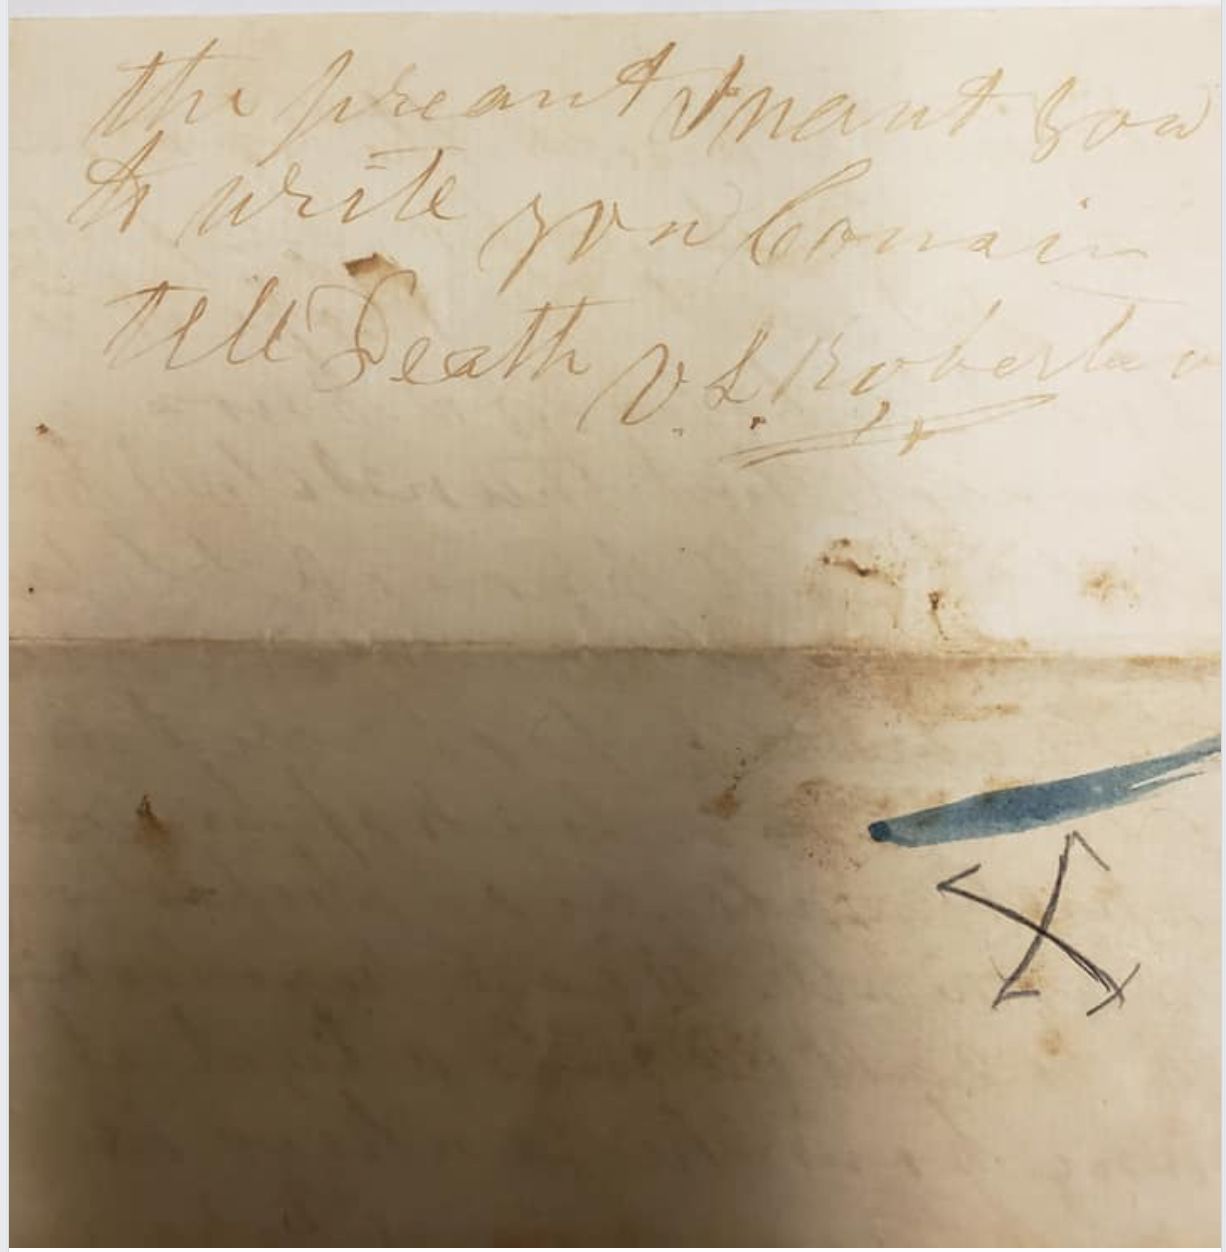 the preasant I want you
to write you Cousin
till Death V. L. Robertso